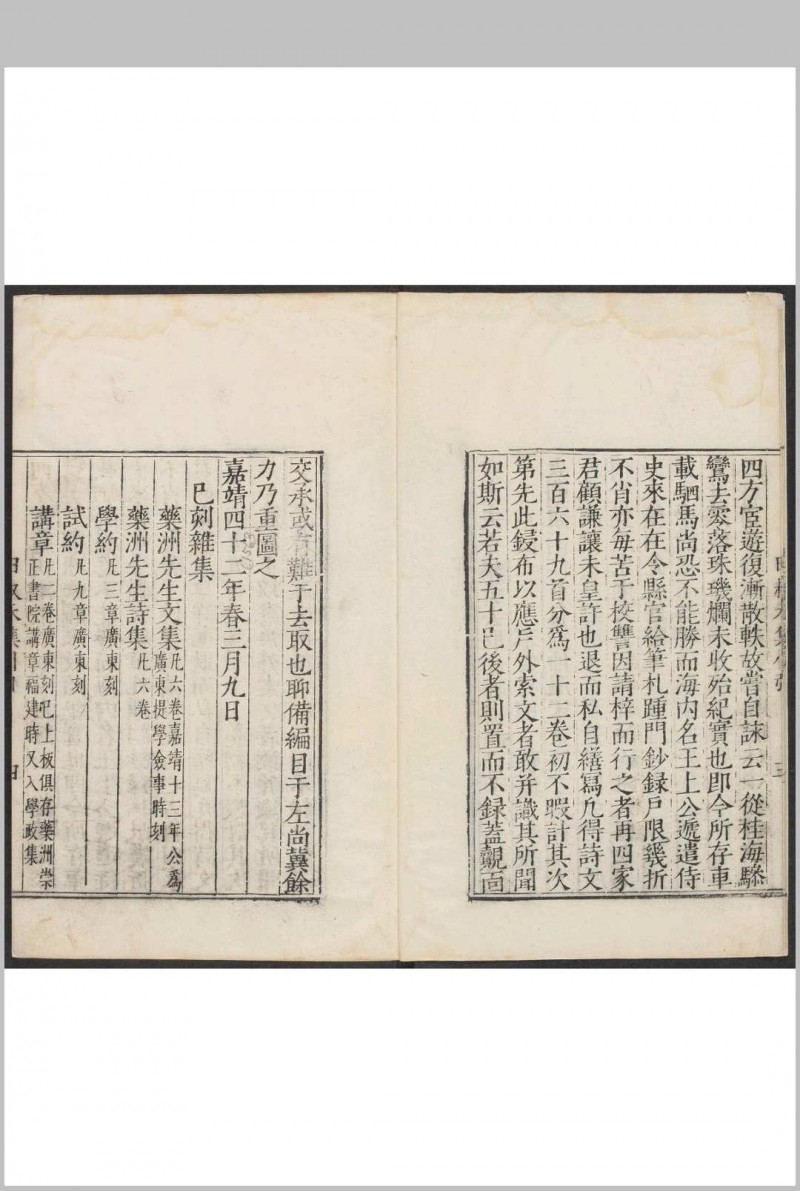 四方宦遊復漸散軼故嘗自誄云一從桂海驂
鸞去零落珠璣爛未收殆紀實也即今所存車
載駟馬尚恐不能勝而海内名王上公遞遣侍
史來在在令縣官給筆札踵門鈔録戸限幾折
不肖亦毎苦于校讐因請梓而行之者再四家
君顧謙讓未皇許也退而私自繕寫凡得詩文
三百六十九首分爲一十二卷初不暇計其次
第先此鋟布以應戸外索文者敢并識其所聞
如斯云若夫五十已後者則置而不録蓋覿面
交承或有難于去取也聊備編目于左尚冀餘
力乃重圖之
嘉靖四十二年春三月九日
已刻雜集
藥洲先生文集凡六卷嘉靖十三年公爲廣東提學僉事時刻
藥洲先生詩集凡六卷
學約凡三章廣東刻
試約凡九章廣東刻
講章凡二卷廣東刻已上板俱存藥洲崇正書院講章福建時又入學政集